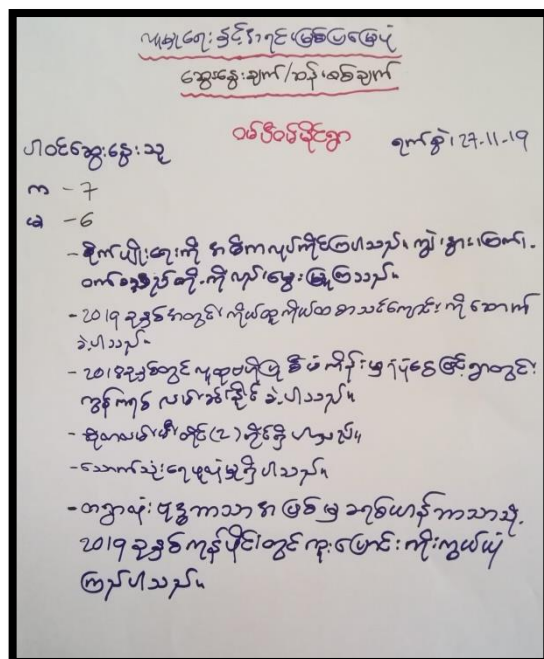 လူမှုရေးနှင့်အရင်းအမြစ်ပြမြေပုံ
ဆွေးနွေးချက်/ဆန်းစစ်ချက်
ဝမ်ပီဝမ်မိုင်ရွာ
ပါဝင်ဆွေးနွေးသူ
ရက်စွဲ၊ 27-11-19
က - 7
မ - 6
- စိုက်ပျိုးရေးကို အဓိကလုပ်ကိုင်ကြပါသည်။ ကျွဲ၊ နွား၊ ကြက်၊
ဝက် စသည်တို့ကိုလည်း မွေးမြူကြသည်။
- 2019 ခုနှစ်အတွင်း ကိုယ်ထူကိုယ်ထ စာသင်ကျောင်းကို ဆောက်
ခဲ့ပါသည်။
- 2018 ခုနှစ်တွင် လူထုဗဟိုပြုစီမံကိန်းမှ ရံပုံငွေဖြင့် ရွာတွင်း
ကွန်ကရစ် လမ်းခင်းနိုင်ခဲ့ပါသည်။
- ဆိုလာလမ်းမီးတိုင် (၃) တိုင်ရှိပါသည်။
- သောက်သုံးရေ ဖူလုံမှုရှိပါသည်။
- တရွာလုံး ဗုဒ္ဓဘာသာအဖြစ်မှ ခရစ်ယာန်ဘာသာသို့
2019 ခုနှစ်ကုန်ပိုင်းတွင် ကူးပြောင်းကိုးကွယ်ယုံ
ကြည်ပါသည်။